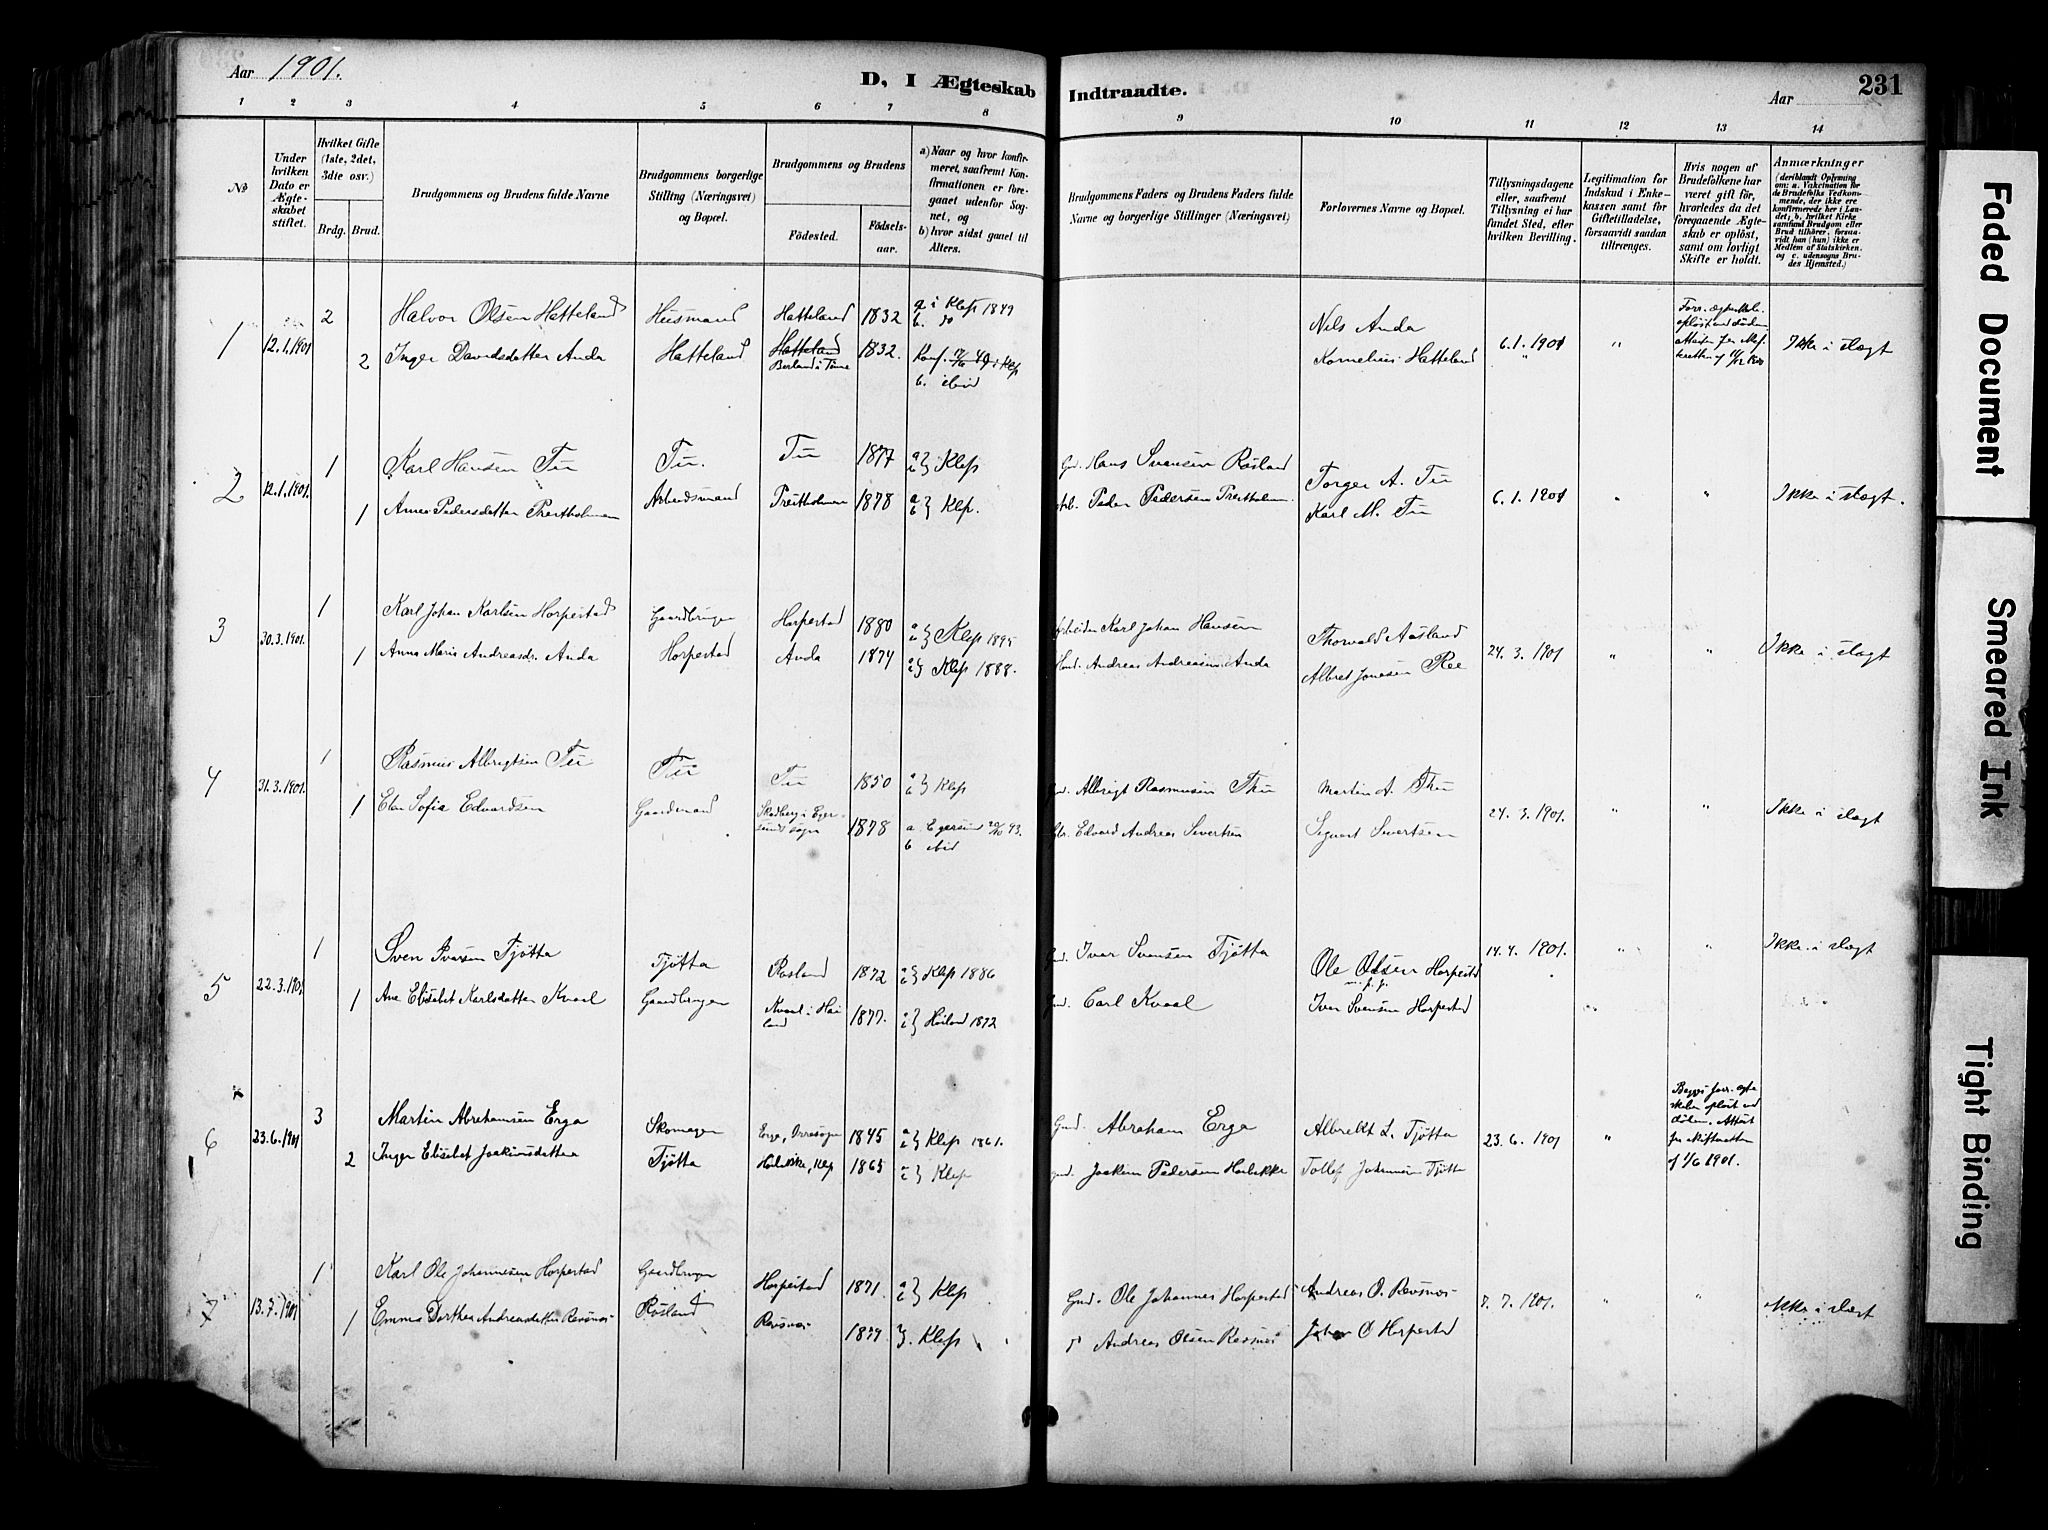 Aar 1901.
D, I Ægteskab Indtraadte.
Aar
231
1 2 3 4 5 6 7 8 9 10 11 12 13 14
№
Under hvilken Dato er Ægteskabet stiftet.
Hvilket Gifte (1ste, 2det, 3die osv.)
Brdg. Brud.
Brudgommens og Brudens fulde Navne
Brudgommens borgerlige Stilling (Næringsvei) og Bopæl.
Brudgommens og Brudens
Födested. Födsels-aar.
a) Naar og hvor konfirmeret, saafremt Konfirmationen er foregaaet udenfor Sognet, og
b) hvor sidst gaaet til Alters.
Brudgommens Faders og Brudens Faders fulde Navne og borgerlige Stillinger (Næringsvei)
Forlovernes Navne og Bopæl.
Tillysningsdagene eller, saafremt Tillysning ei har fundet Sted, efter hvilken Bevilling.
Legitimation for Indskud i Enkekassen samt for Giftetilladelse, forsaavidt saadan tiltrænges.
Hvis nogen af Brudefolkene har været gift för, hvorledes da det foregaaende Ægteskab er oplöst, samt om lovligt Skifte er holdt.
Anmærkninger (deriblandt Oplysning om: a. Vakcination for de Brudefolks Vedkommende, der ikke ere konfirmerede her i Landet; b. hvilket Kirkesamfund Brudgom eller Brud tilhörer, forsaavidt han (hun) ikke er Medlem af Statskirken. og c. udensogns Brudes Hjemsted.)
1 12.1.1901 2 Halvor Olsen Hatteland Husmand Hatteland 1832 a i Klep 1849 b. do Nils Anda 6.1.1901 " Ikke i slægt
2 Inger Davidsdatter Anda Hatteland Hatteland Borland i Time 1832. Konf. i Klep b. ibid Kornelius Hatteland
2 12.1.1901. 1 Karl Hansen Tu Tu. Tu 1877 a b } Klep Gmd. Hans Svensen Røsland Torger A. Tu 6.1.1901 " " Ikke i slægt.
1 Anne Pedersdatter Prestholmen Arbeidsmand Prestholmen 1878 a b } Klep. Peder Pedersen Prestholm. Karl M. Tu
3 30.3.1901. 1 Karl Johan Karlsen Horpestad Gaardbruger Horpestad 1880 a b } Klep 1895 Arbeider Karl Johan Hansen Thorvald Aasland 24.3.1901 " " Ikke i slægt
1 Anna Maria Andreasdr. Anda Horpestad Anda 1874 a b } Klep 1888. Andreas Andreasen Anda Albret Jonesen Ree
4 31.3.1901. 1 Rasmus Albrigtsen Tu Tu Tu 1850 a b } Klep Gmd. Albrigt Rasmussen Thu Martin A. Thu 24.3.1901. " " Ikke i slægt
1 Elen Sofia Edvardsen Gaardmand Skadberg i Egersunds sogn 1878 a Egersund 93. b ibid Edvard Andreas Sivertsen Sigvart Sivertsen
5 22.3.1901. 1 Sven Iversen Tjøtta Tjøtta Røsland 1872 a b } Klep 1886 Gmd. Iver Svensen Tjøtta Ole Olsen Horpestad 14.4.1901. " " Ikke i slægt
1 Ane Elisabet Karlsdatter Kvaal Gaardbruger Kvaal i Høiland 1877. a b } Høiland 1892 Gmd. Carl Kvaal Iver Svensen Horpestad
6 23.6.1901 3 Martin Abrahamsen Erga Skomager Erga, Orresogn 1845 a b } Klep 1861. Gmd. Abraham Erga Albrekt L. Tjøtta 23.6.1901 " Begges forr. ægteskaber opløst ved døden. Attest fra skifteretten af 1/6 1901.
2 Inger Elisabet Joakimsdatter Tjøtta Hodnekke, Klep 1865 a b } Klep Gmd. Joakim Pedersen Tollef Johannesen Tjøtta
7 13.7.1901 1 Karl Ole Johannesen Horpestad Gaardbruger Horpestad 1871. a b } Klep Gmd. Ole Johannes Horpestad Andreas O. Revsnes 7.7.1901. " " Ikke i slægt
1 Emma Dorthea Andreasdatter Revsnes Røsland Revsnes 1879 } Klep Andreas Olsen Revsnes Johan O Horpestad
Faded Document
Smeared Ink
Tight Binding